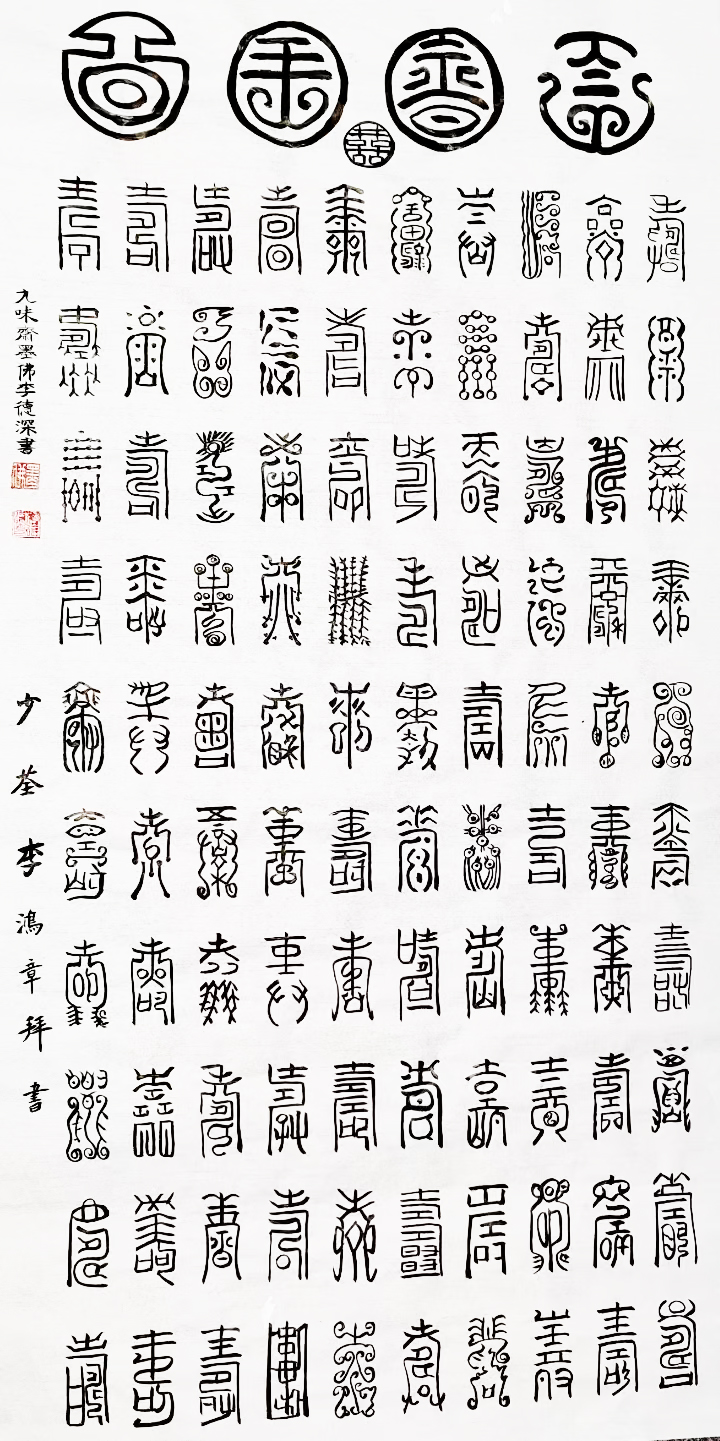 囍
壽壽壽壽壽壽壽壽壽壽
壽壽壽壽壽壽壽壽壽壽
壽壽壽壽壽壽壽壽壽壽
壽壽壽壽壽壽壽壽壽壽
壽壽壽壽壽壽壽壽壽壽
壽壽壽壽壽壽壽壽壽壽
壽壽壽壽壽壽壽壽壽壽
壽壽壽壽壽壽壽壽壽壽
壽壽壽壽壽壽壽壽壽壽
壽壽壽壽壽壽壽壽壽壽
九味齋墨佛李德深書
少荃李鴻章拜書